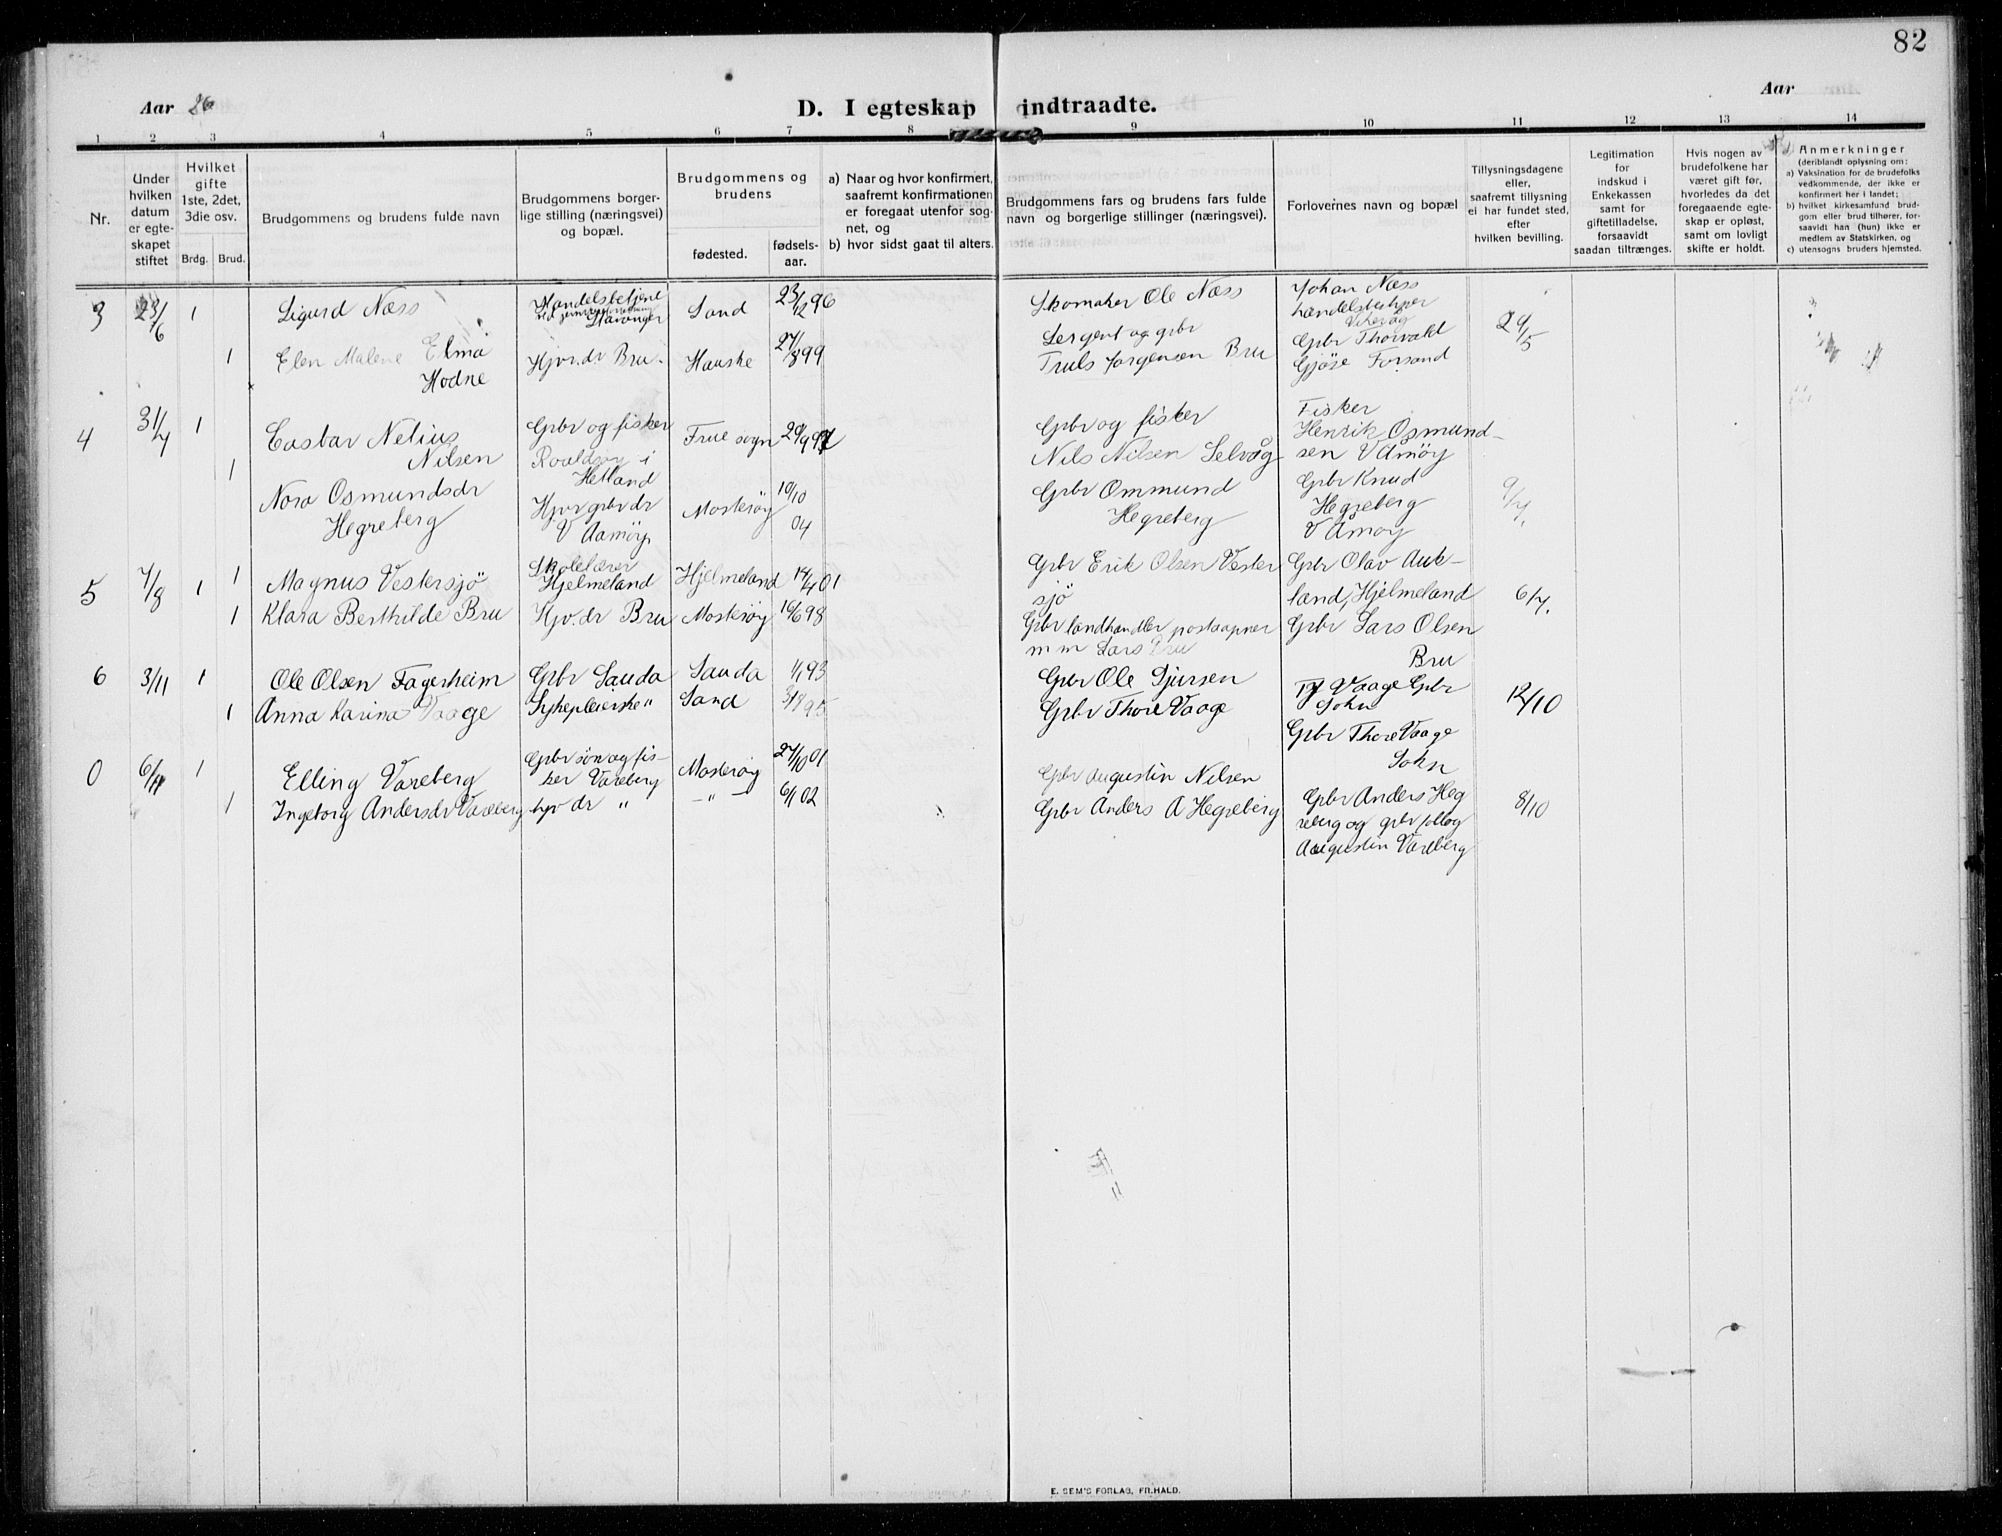 82
Aar 26
D. I egteskap indtraadte.
Aar
1 2 3 4 5 6 7 8 9 10 11 12 13 14
Nr.
Under hvilken datum er egte-skapet stiftet
Hvilket gifte 1ste, 2det, 3die osv.
Brdg. Brud.
Brudgommens og brudens fulde navn
Brudgommens borger-lige stilling (næringsvei) og bopæl.
Brudgommens og brudens
fødested.
fødsels-aar.
a) Naar og hvor konfirmert, saafremt konfirmationen er foregaat utenfor sog-net, og
b) hvor sidst gaat til alters.
Brudgommens fars og brudens fars fulde navn og borgerlige stillinger (næringsvei).
Forlovernes navn og bopæl
Tillysningsdagene eller, saafremt tillysning ei har fundet sted, efter hvilken bevilling.
Legitimation for indskud i Enkekassen samt for giftetilladelse, forsaavidt saadan tiltrænges.
Hvis nogen av brudefolkene har været gift før, hvorledes da det foregaaende egte-skap er opløst, samt om lovligt skifte er holdt.
Anmerkninger
(deriblandt oplysning om:
a) Vaksination for de brudefolks vedkommende, der ikke er konfirmert her i landet;
b) hvilket kirkesamfund brud-gom eller brud tilhører, for-saavidt han (hun) ikke er medlem av Statskirken, og
c) utensogns bruders hjemsted.
3 23/6 1 Sigurd Næss
Handelsbetjent
Stavanger
Sand 23/12 96
Skomaker Ole Næss
Johan Næss
handelsbestyrer
Vikevåg
29/5
1 Elen Malene Elma
Hodne
Hjv. dr Bru.
Hauske 27/8 99
Sergent og gbr
Truls Jørgensen Bru
Gbr Thorvald
Gjøse Forsand
4 31/7 1 Casbar Nelius
Nilsen
Gbr og fisker
Roaldsøy i
Hetland
Frue sogn 29/9 97
Gbr og fisker
Nils Nilsen Selvåg
Fisker
Henrik Osmund-
sen V Amøy
9/7.
1 Nora Osmundsdr
Hegreberg
Hjv gbr dr
V Aamøy.
Mosterøy 10/10
04
Gbr Ommund
Hegreberg
Gbr Knud
Hegreberg
V Amøy
5 7/8 1 1 Magnus Vestersjø
Skolelærer
Hjelmeland
Hjelmeland 14/4 01
Gbr Erik Olsen Vester
sjø
Gbr Olav Auk-
land, Hjelmeland
6/7.
1 Klara Berthilde Bru
Hjv. dr Bru
Mosterøy 16/6 98
Gbr landhandler postaapner
m m Lars Bru
Gbr Lars Olsen
Bru
6 3/11 1 Ole Olsen Fagerheim
Gbr Sauda
Sauda 1/1 93
Gbr Ole Djursen
Vaage Gbr
Sohn
12/10
1 Anna Karina Vaage
Sykepleierske "
Sand 95
Gbr Thore Vaage
Gbr Thore Vaage
Sohn
0 6/11 1 Elling Vareberg
Gbr søn og fis-
ker Vareberg
Mosterøy 27/10 01
Gbr Augustin Nilsen
Gbr Anders Heg
reberg og gbr
Augustin Vareberg
8/10
1 Ingeborg Andersdr Vareberg
hjv dr "
-"- 6/1 02
Gbr Anders A Hegreberg
E. SEM'S FORLAG, FR.HALD.